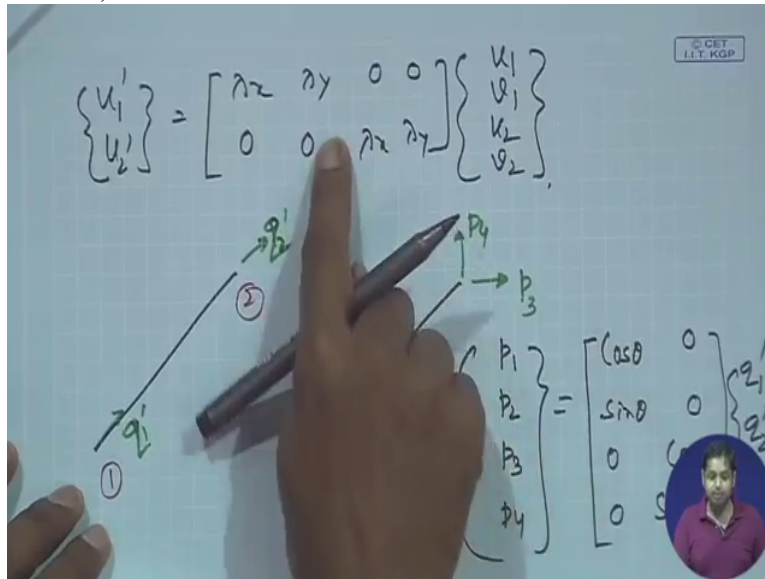 © CET
I.I.T. KGP
{u₁' u₂'} = [λx λy 0 0
0 0 λx λy] {u₁ v₁ u₂ v₂}.
q₂'
②
q₁'
①
p₄
p₃
{p₁ p₂ p₃ p₄} = [Cosθ 0
sinθ 0
0
0] {q₁' q₂'